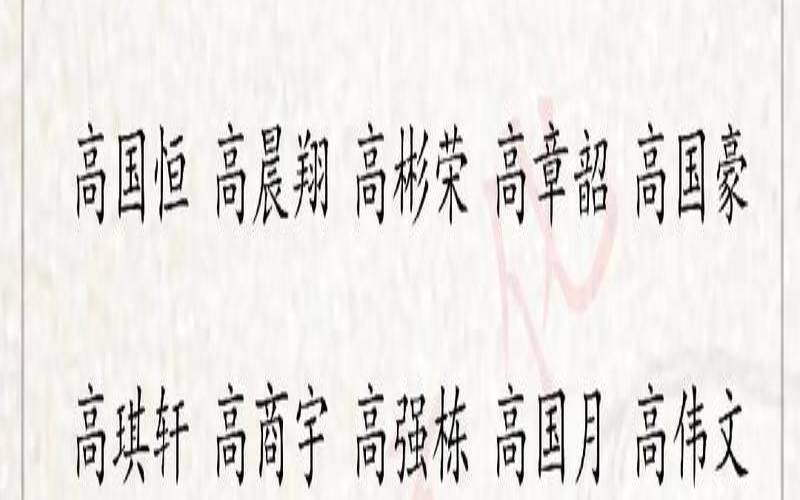 高国恒 高晨翔 高彬荣 高章韶 高国豪
高琪轩 高商宇 高强栋 高国月 高伟文